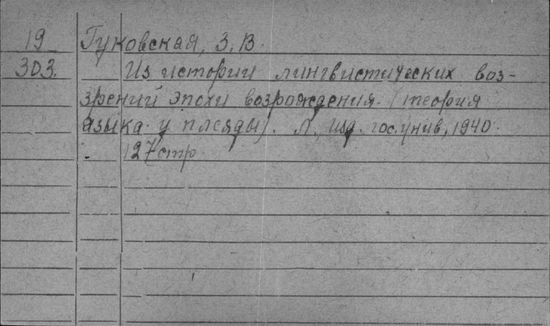 19 Гуковская, З.В.
303. Из истории лингвистических воз-
зрений эпохи возрождения. (теория
языка у плеяды). Л, изд. гос. унив, 1940.
127стр.